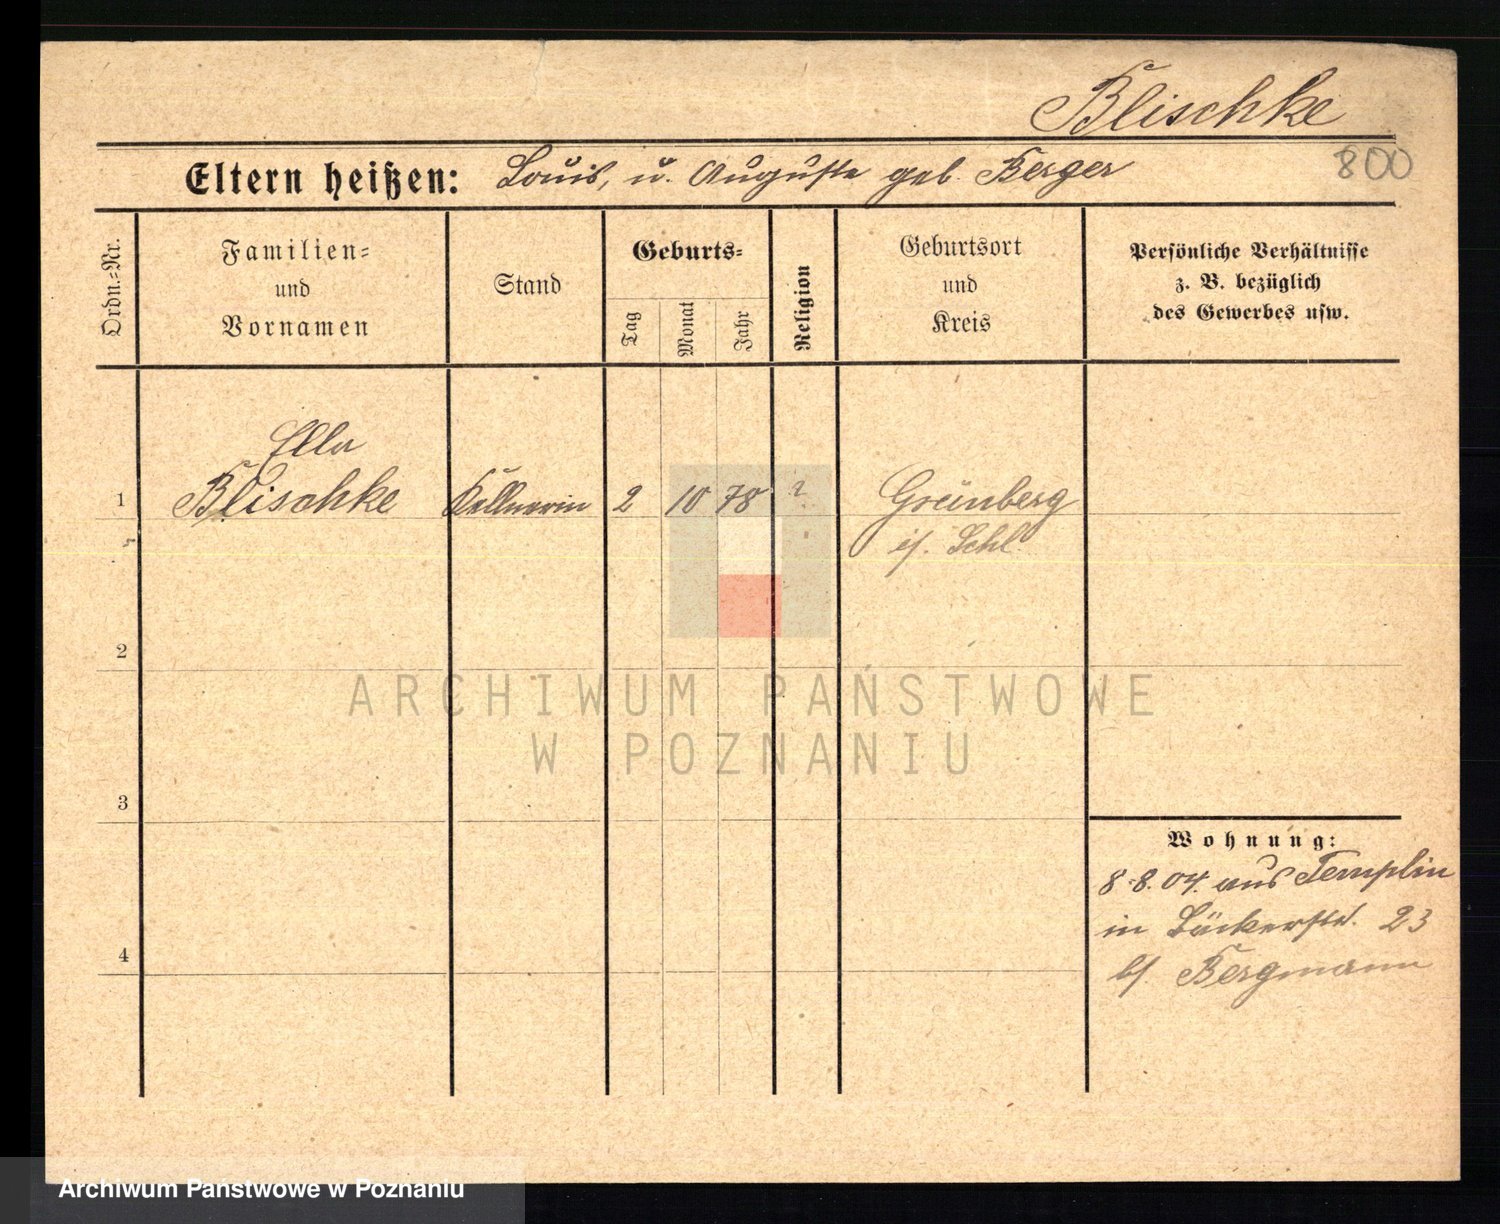 Blischke
800
Eltern heißen: Louis, u. Auguste geb. Berger
Ordn.=Nr.
Familien=
und
Vornamen
Stand
Geburts=
Tag
Monat
Jahr
Religion
Geburtsort
und
Kreis
Persönliche Verhältnisse
z. B. bezüglich
des Gewerbes usw.
Ella
1 Blischke Kellnerin 2 10 78 ? Grünberg
i/. Schl.
2
ARCHIWUM PAŃSTWOWE
W POZNANIU
3
Wohnung:
8.8.04. aus Templin
in Bäckerstr. 23
b/. Bergmann
4
Archiwum Państwowe w Poznaniu